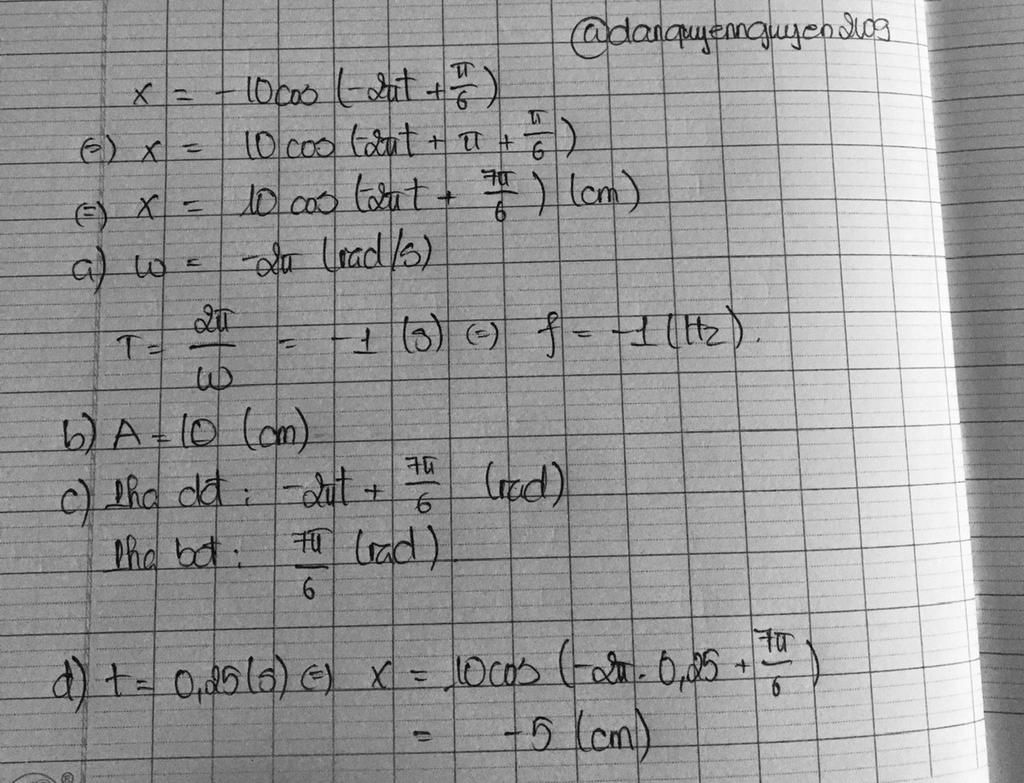 @danquyennguyen2109
x = -10cos (-2πt + π/6)
(=) x = 10 cos (-2πt + π + π/6)
(=) x = 10 cos (-2πt + 7π/6) (cm)
a) ω = -2π (rad/s)
T = 2π/ω = -1 (s) (=) f = -1 (Hz).
b) A = 10 (cm)
c) Pha dđ : -2πt + 7π/6 (rad)
Pha bđ : 7π/6 (rad)
d) t = 0,25(s) (=) x = 10cos (-2π. 0,25 + 7π/6)
= -5 (cm)